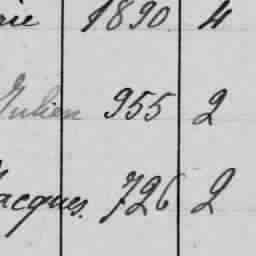 1890. 4
Julien 955 2
Jacques. 726 2